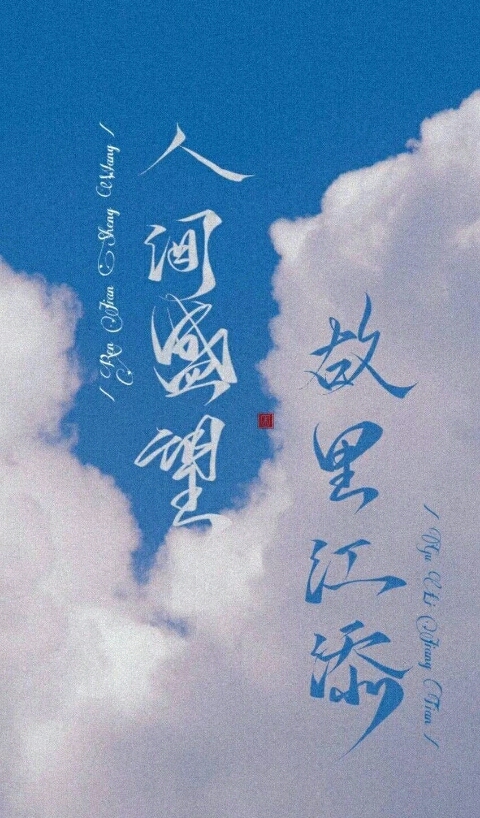 人间盛望
/ Ren Jian Sheng Wang /
故里江添
/ Gu Li Jiang Tian /